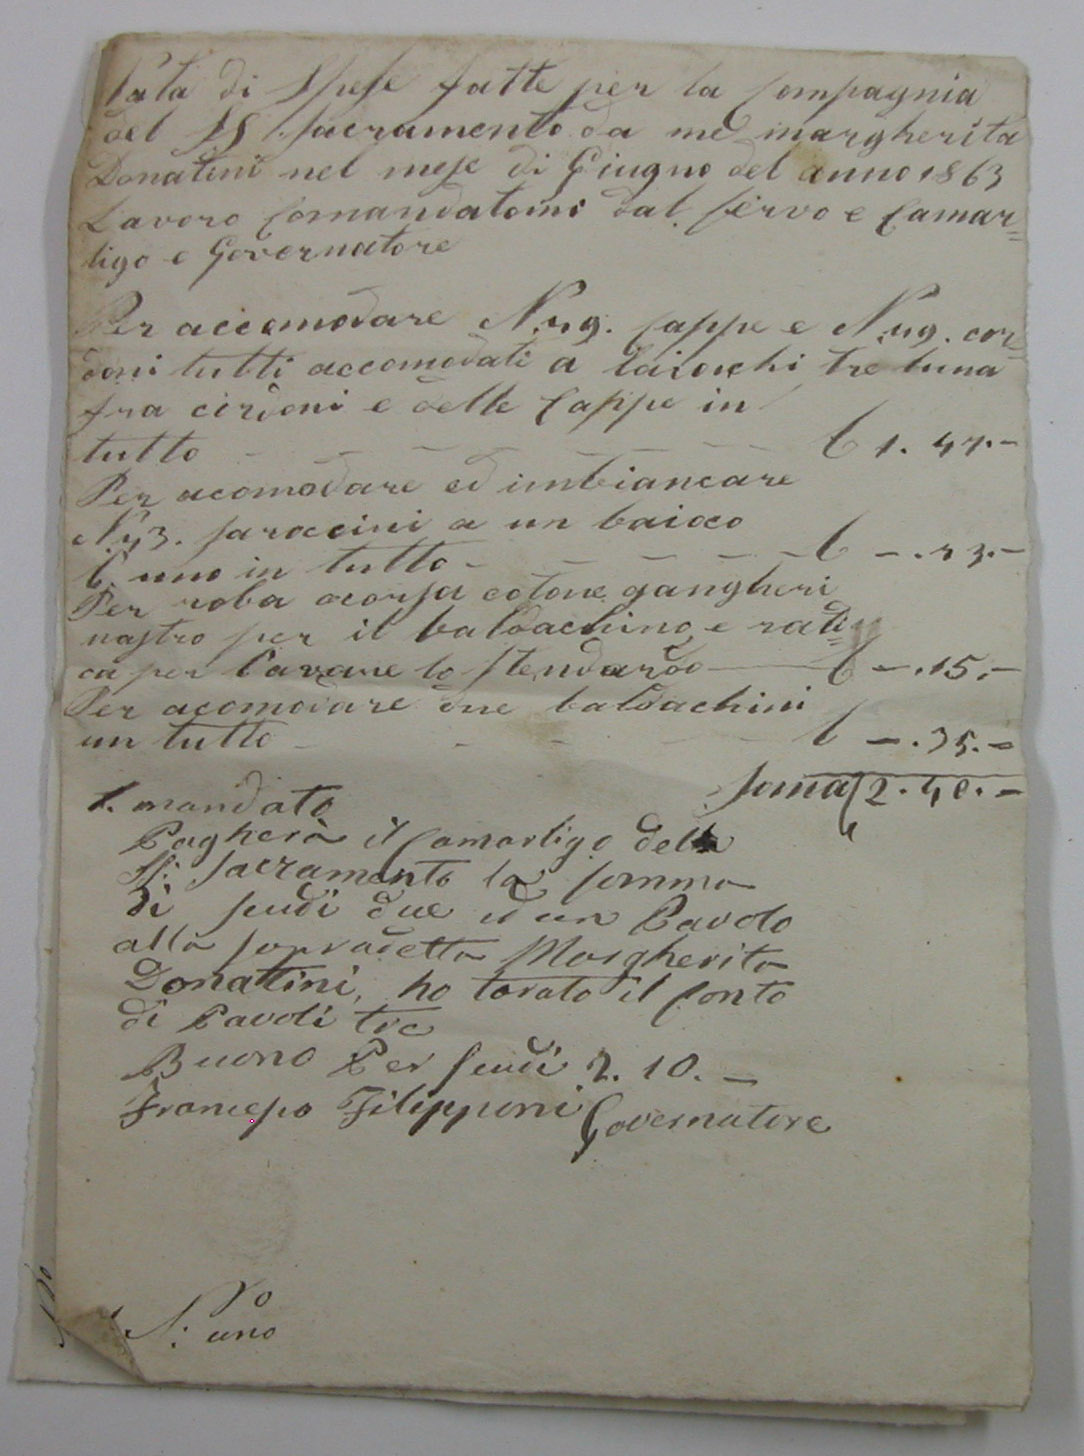 Nata di Spese fatte per la Compagnia
del SS Sacramento da me margherita
Donatini nel mese di Giugno del anno 1863
Lavoro Comandatomi dal Servo e Camar=
ligo e Governatore
Per accomodare N. 49. Cappe e N. 49. cor=
doni tutti accomodati a baiochi tre luna
fra cordoni e delle Cappe in
tutto 1. 47.-
Per acomodare ed imbiancare
N. 43. saroccini a un baioco
l'uno in tutto - .43.-
Per roba acorsa cotone gangheri
nastro per il baldachino e radi=
ca per lavare lo stendardo - .15.-
Per acomodare due baldachini
un tutto - .35.-
Soma 2.40.-
1. mandato
Pagherà il Camarligo della
SS: Sacramento la somma
di scudi due ed un Pavolo
alla sopradetta Margherita
Donattini, ho tarato il Conto
di Pavoli tre
Buono Per Scudi 2. 10. -
Francesco Filipponi Governatore
N: uno